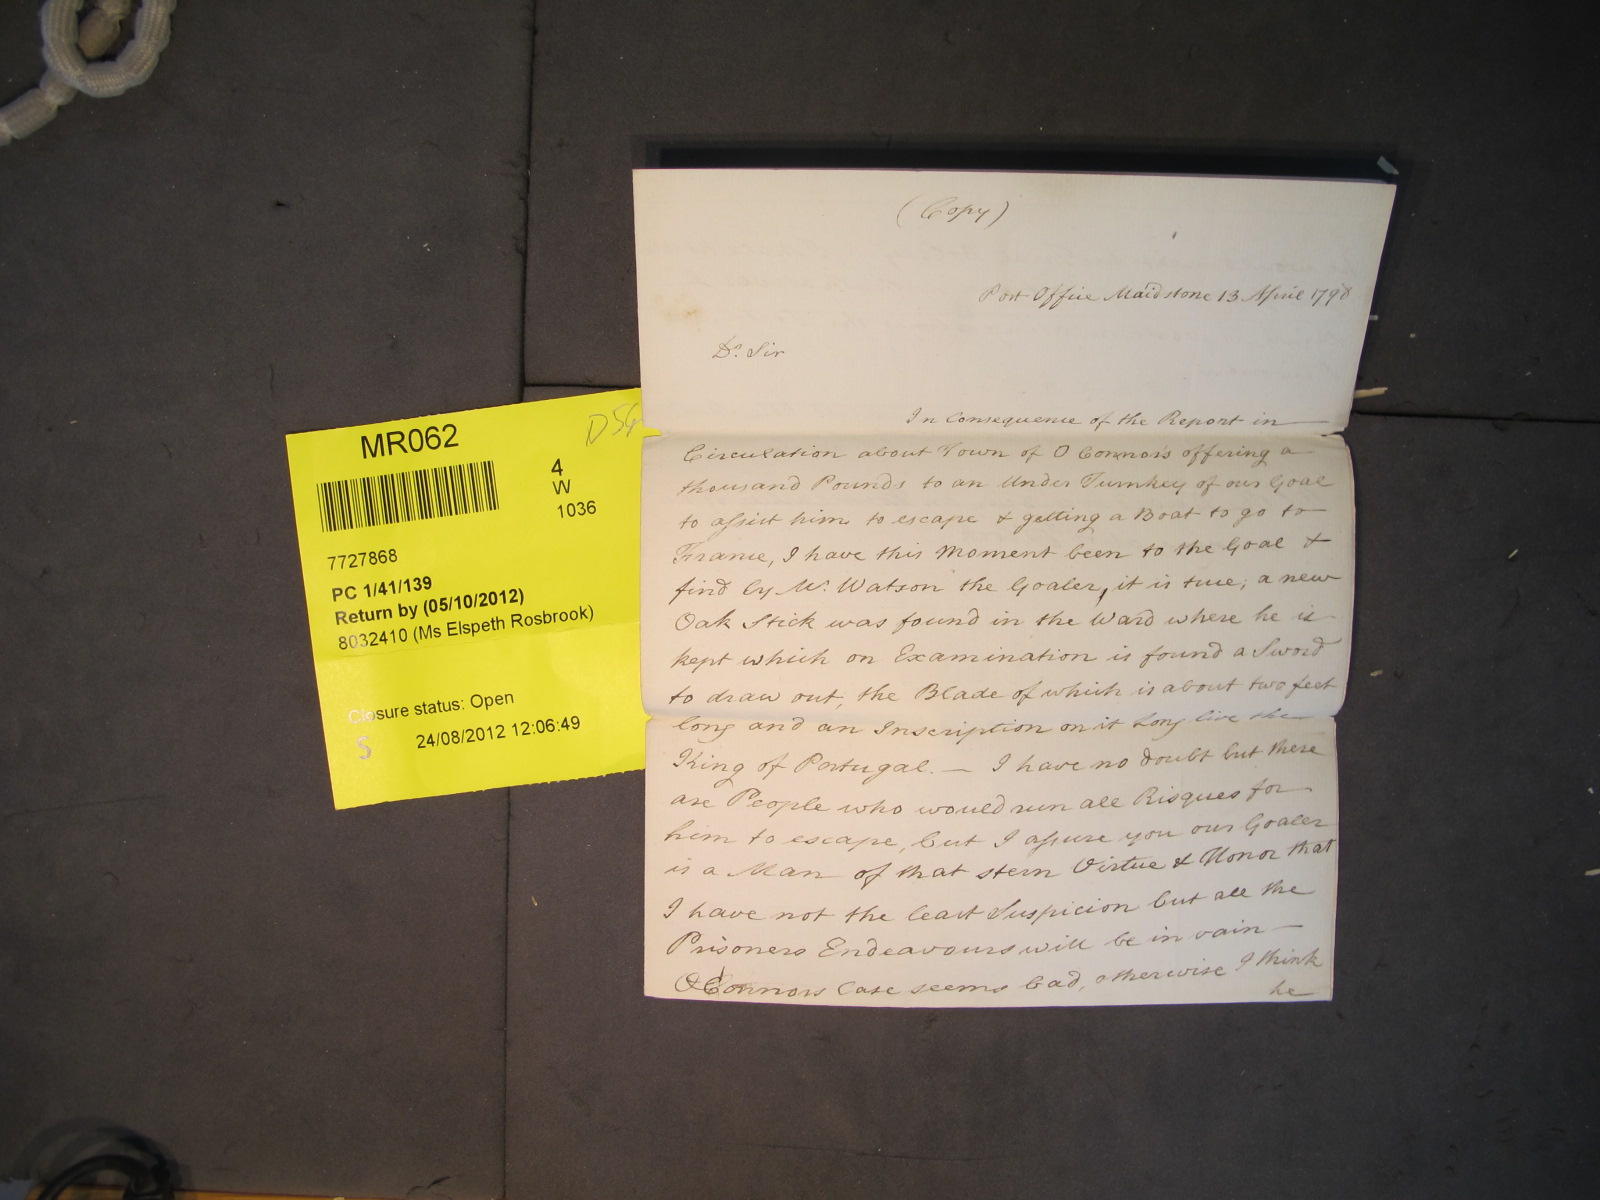 MR062
D54
4
W
1036
7727868
PC 1/41/139
Return by (05/10/2012)
8032410 (Ms Elspeth Rosbrook)
Closure status: Open
S
24/08/2012 12:06:49
(Copy)
Post Office Maidstone 13 April 1798
Dr. Sir
In Consequence of the Report in
Circulation about Town of O Connor's offering a
thousand Pounds to an Under Turnkey of our Goal
to assist him to escape & getting a Boat to go to
France, I have this Moment been to the Goal &
find by Mr. Watson the Goaler, it is true; a new
Oak Stick was found in the Ward where he is
kept which on Examination is found a Sword
to draw out, the Blade of which is about two feet
long and an Inscription on it Long live the
King of Portugal. — I have no doubt but there
are People who would run all Risques for
him to escape, but I assure you our Goaler
is a Man of that stern Virtue & Honor that
I have not the least Suspicion but all the
Prisoners Endeavours will be in vain —
O Connors Case seems bad, otherwise I think
he